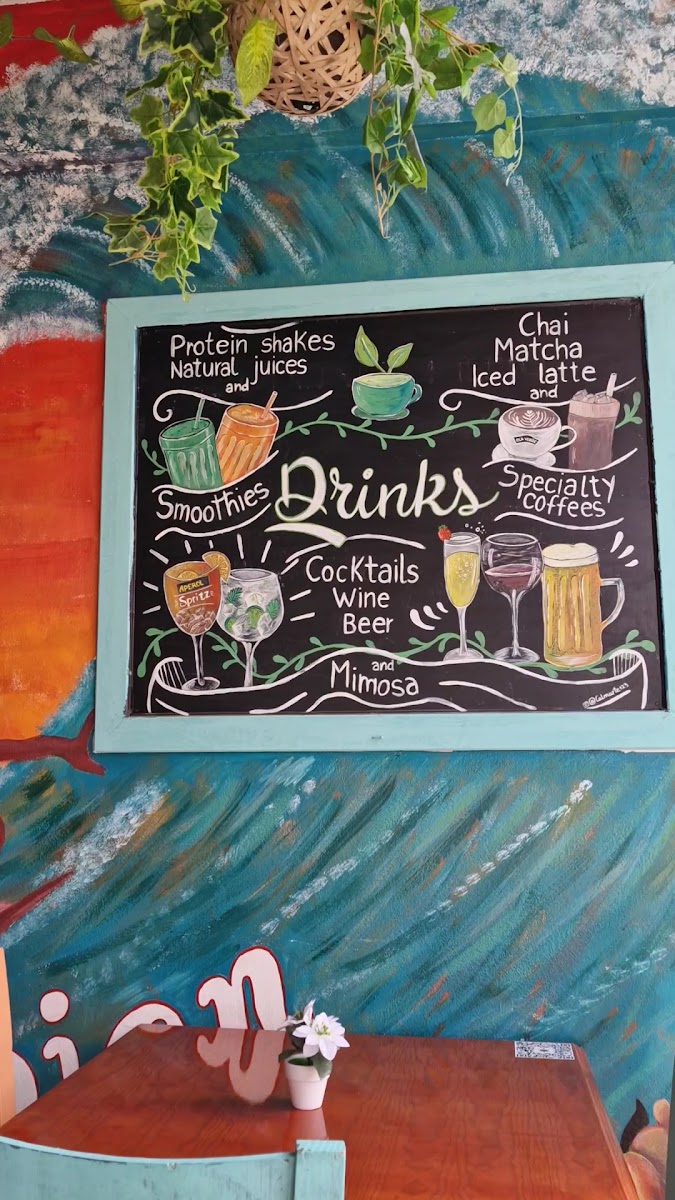 Protein shakes
Natural juices
and
Smoothies
Chai
Matcha
Iced latte
and
Specialty
coffees
Drinks
APEROL
Spritz
Cocktails
Wine
Beer
and
Mimosa
ion